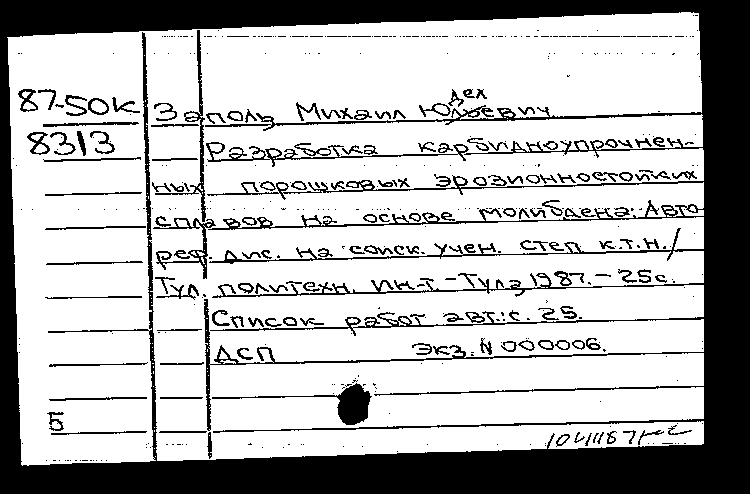 87-50к Заполь Михаил Юдельевич
8313 Разработка карбидноупрочнен-
ных порошковых эрозионностойких
сплавов на основе молибдена: Авто-
реф. дис. на соиск. учен. степ к.т.н./
Тул. политехн. ин-т. - Тула, 1987. - 25с.
Список работ авт.: с. 25.
ДСП Экз. N 000006.
Б